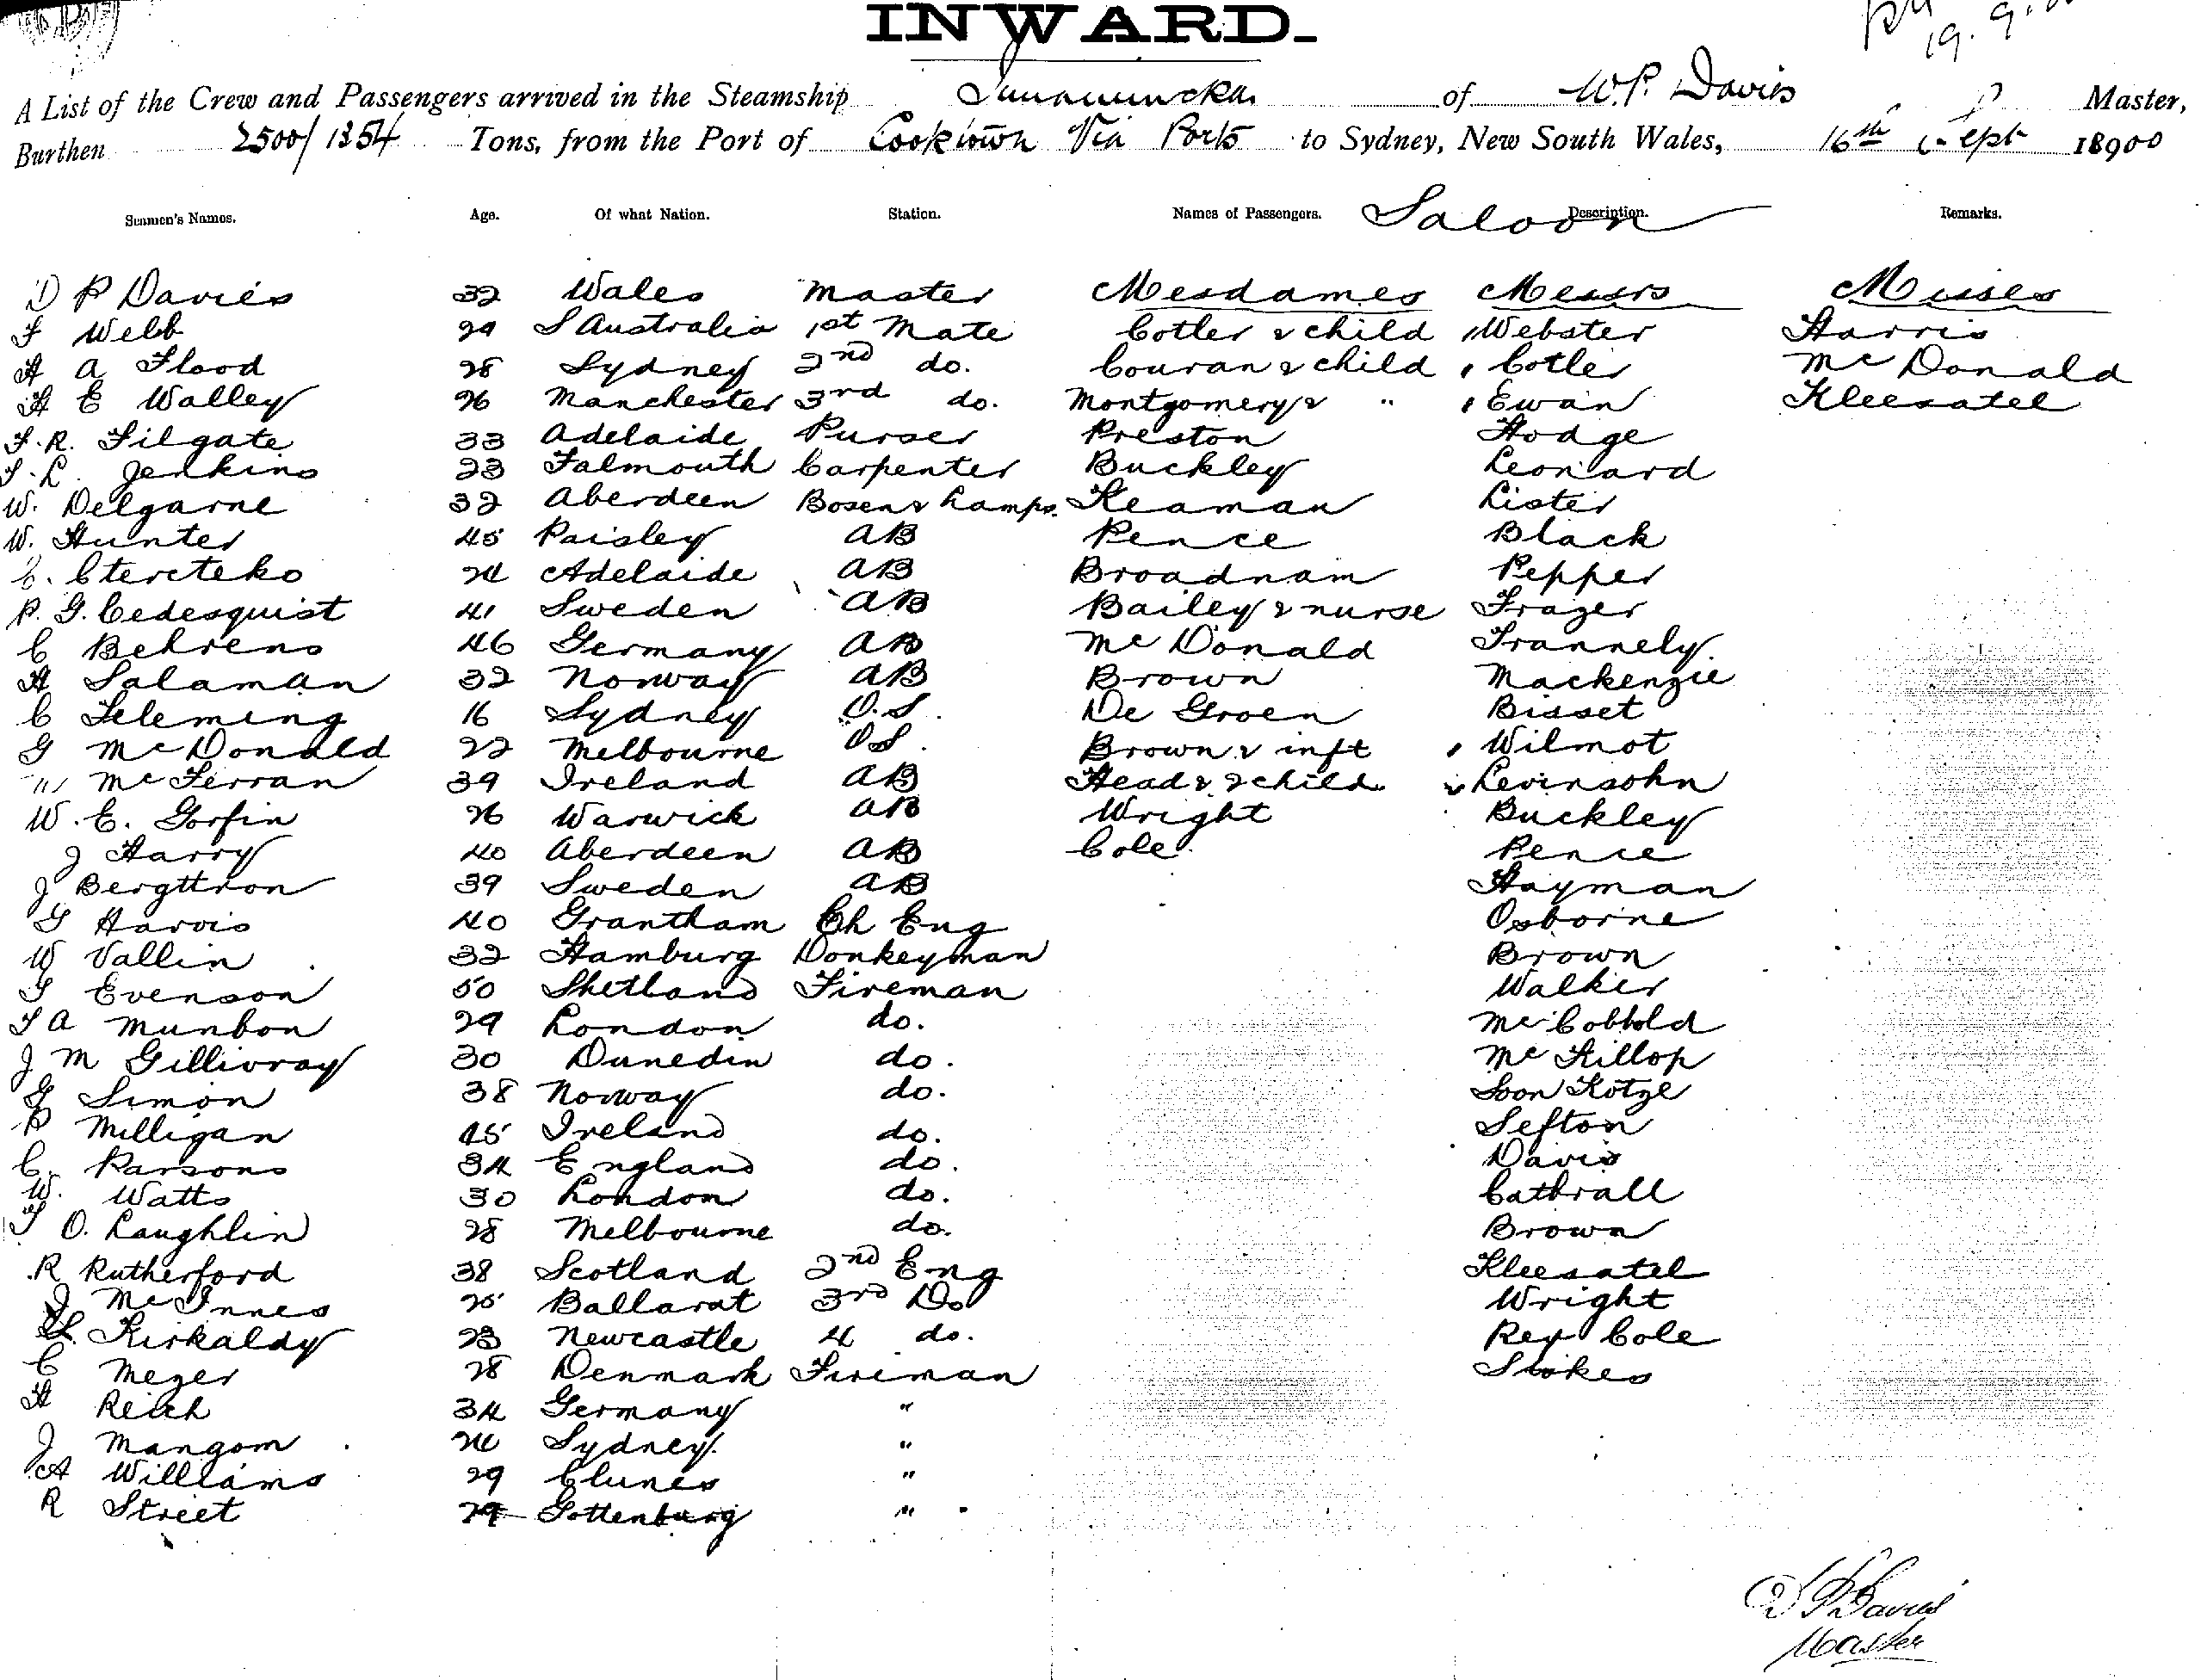 INWARD.
19. 9.
A List of the Crew and Passengers arrived in the Steamship Innamincka of W.P. Davies Master,
Burthen 2500/1354 Tons, from the Port of Cooktown Via Ports to Sydney, New South Wales, 16th Sept 18900
Seamen's Names. Age. Of what Nation. Station. Names of Passengers. Saloon Description. Remarks.
D P Davies 32 Wales Master Mesdames Messrs Misses
F Webb 29 S Australia 1st Mate Cotler & child Webster Harris
H A Flood 28 Sydney 2nd do. Couran & child Cotler Mc Donald
H E Walley 26 Manchester 3rd do. Montgomery & " Ewan Kleesatel
F. R. Filgate 33 Adelaide Purser Preston Hodge
F. L. Jenkins 23 Falmouth Carpenter Buckley Leonard
W. Delgarne 32 Aberdeen Bosen & Lamps. Keaman Lister
W. Hunter 45 Paisley AB Pence Black
C. Ctercteko 24 Adelaide AB Broadnam Pepper
P. G. Cedesquist 41 Sweden AB Bailey & nurse Frazer
C Behrens 46 Germany AB Mc Donald Frannely.
H Salaman 32 Norway AB Brown Mackenzie
C Fleming 16 Sydney O.S. De Groen Bisset
G McDonald 22 Melbourne OS. Brown & inft Wilmot
" McFerran 39 Ireland AB Head & 2 child. Levinsohn
W. E. Gorfin 26 Warwick AB Wright Buckley
J Harry 40 Aberdeen AB Cole. Pence
J Bergttron 39 Sweden AB Hayman
G Harvis 40 Grantham Ch Eng Osborne
W Vallin 32 Hamburg Donkeyman Brown
G Evenson 50 Shetland Fireman Walker
F A Munbon 29 London do. McCobbold
J M Gillivray 30 Dunedin do. Mc Killop
G Simon 38 Norway do. Soon Kotze
P Milligan 45 Ireland do. Sefton
C. Parsons 34 England do. Davis
W. Watts 30 London do. Cathrall
T O. Laughlin 28 Melbourne do. Brown
R Rutherford 38 Scotland 2nd Eng Kleesatel
J McInnes 25 Ballarat 3rd Do Wright
Kirkaldy 23 Newcastle 4 do. Rev Cole
C Mezer 28 Denmark Fireman Stokes
H Reich 34 Germany "
J Mangom 24 Sydney. "
A Williams 29 Clunes "
R Street 29 Gottenburg "
D P Davies
Master